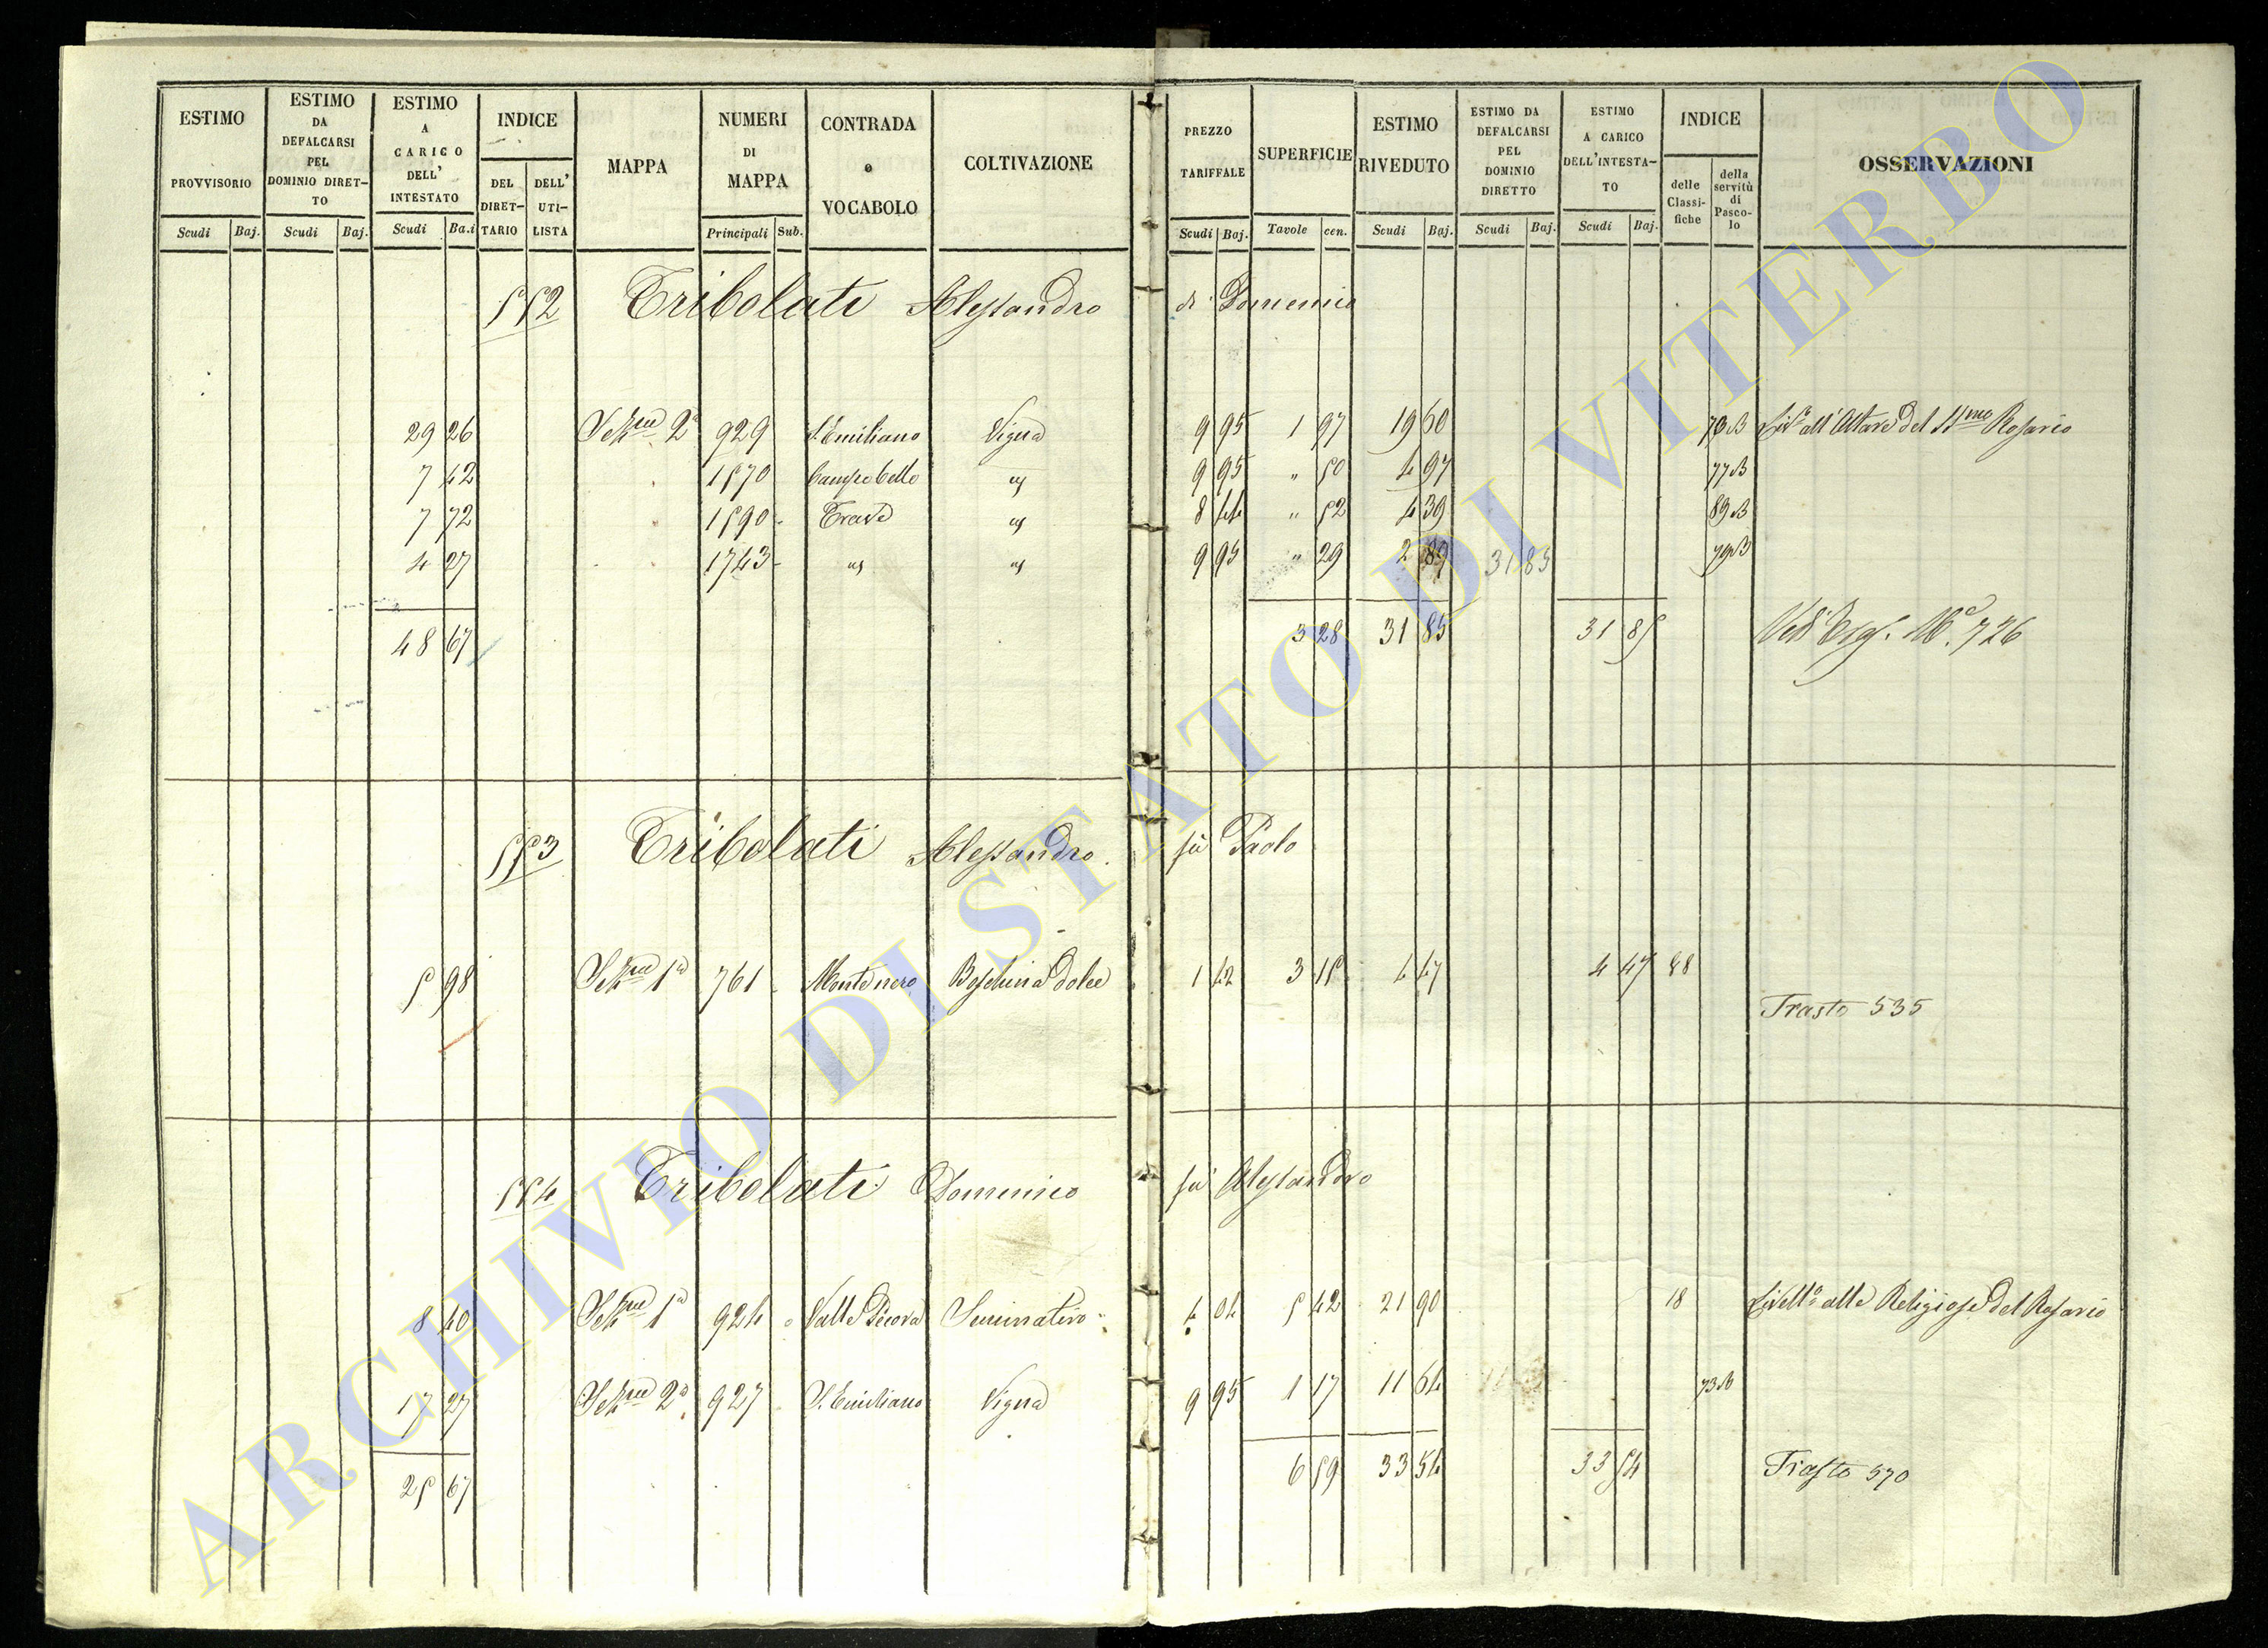 ESTIMO PROVVISORIO Scudi Baj.
ESTIMO DA DEFALCARSI PEL DOMINIO DIRET-TO Scudi Baj.
ESTIMO A CARICO DELL' INTESTATO Scudi Ba.i
INDICE DEL DIRET-TARIO DELL' UTI-LISTA
MAPPA
NUMERI DI MAPPA Principali Sub.
CONTRADA o VOCABOLO
COLTIVAZIONE
PREZZO TARIFFALE Scudi Baj.
SUPERFICIE Tavole cen.
ESTIMO RIVEDUTO Scudi Baj.
ESTIMO DA DEFALCARSI PEL DOMINIO DIRETTO Scudi Baj.
ESTIMO A CARICO DELL'INTESTA-TO Scudi Baj.
INDICE delle Classi-fiche della servitù di Pasco-lo
OSSERVAZIONI
552 Tribolati Alessandro di Domenico
29 26 Sez.ne 2a 929 S. Emiliano Vigna 9 95 1 97 19 60 73 B Liv.o all'Altare del SS.mo Rosario
7 42 1570 Campo bello id 9 95 " 50 4 97 77 B
7 72 1590 Trave id 8 44 " 52 4 39 89 B
4 27 1743 id id 9 95 " 29 2 89 31 85 79 B
48 67 3 28 31 85 31 85 726
553 Tribolati Alessandro fù Paolo
5 98 Sez.ne 1a 761 Monte nero Boschina dolce 1 42 3 15 4 47 4 47 88
Trasto 535
554 Tribolati Domenico fù Alessandro
8 40 Sez.ne 1a 924 Valle Pecora Seminativo 4 04 5 42 21 90 18 Livell.o alle Religiose del Rosario
17 27 Sez.ne 2a 927 S. Emiliano Vigna 9 95 1 17 11 64 73 B
25 67 6 59 33 54 33 54 Trasto 570
ARCHIVIO DI STATO DI VITERBO